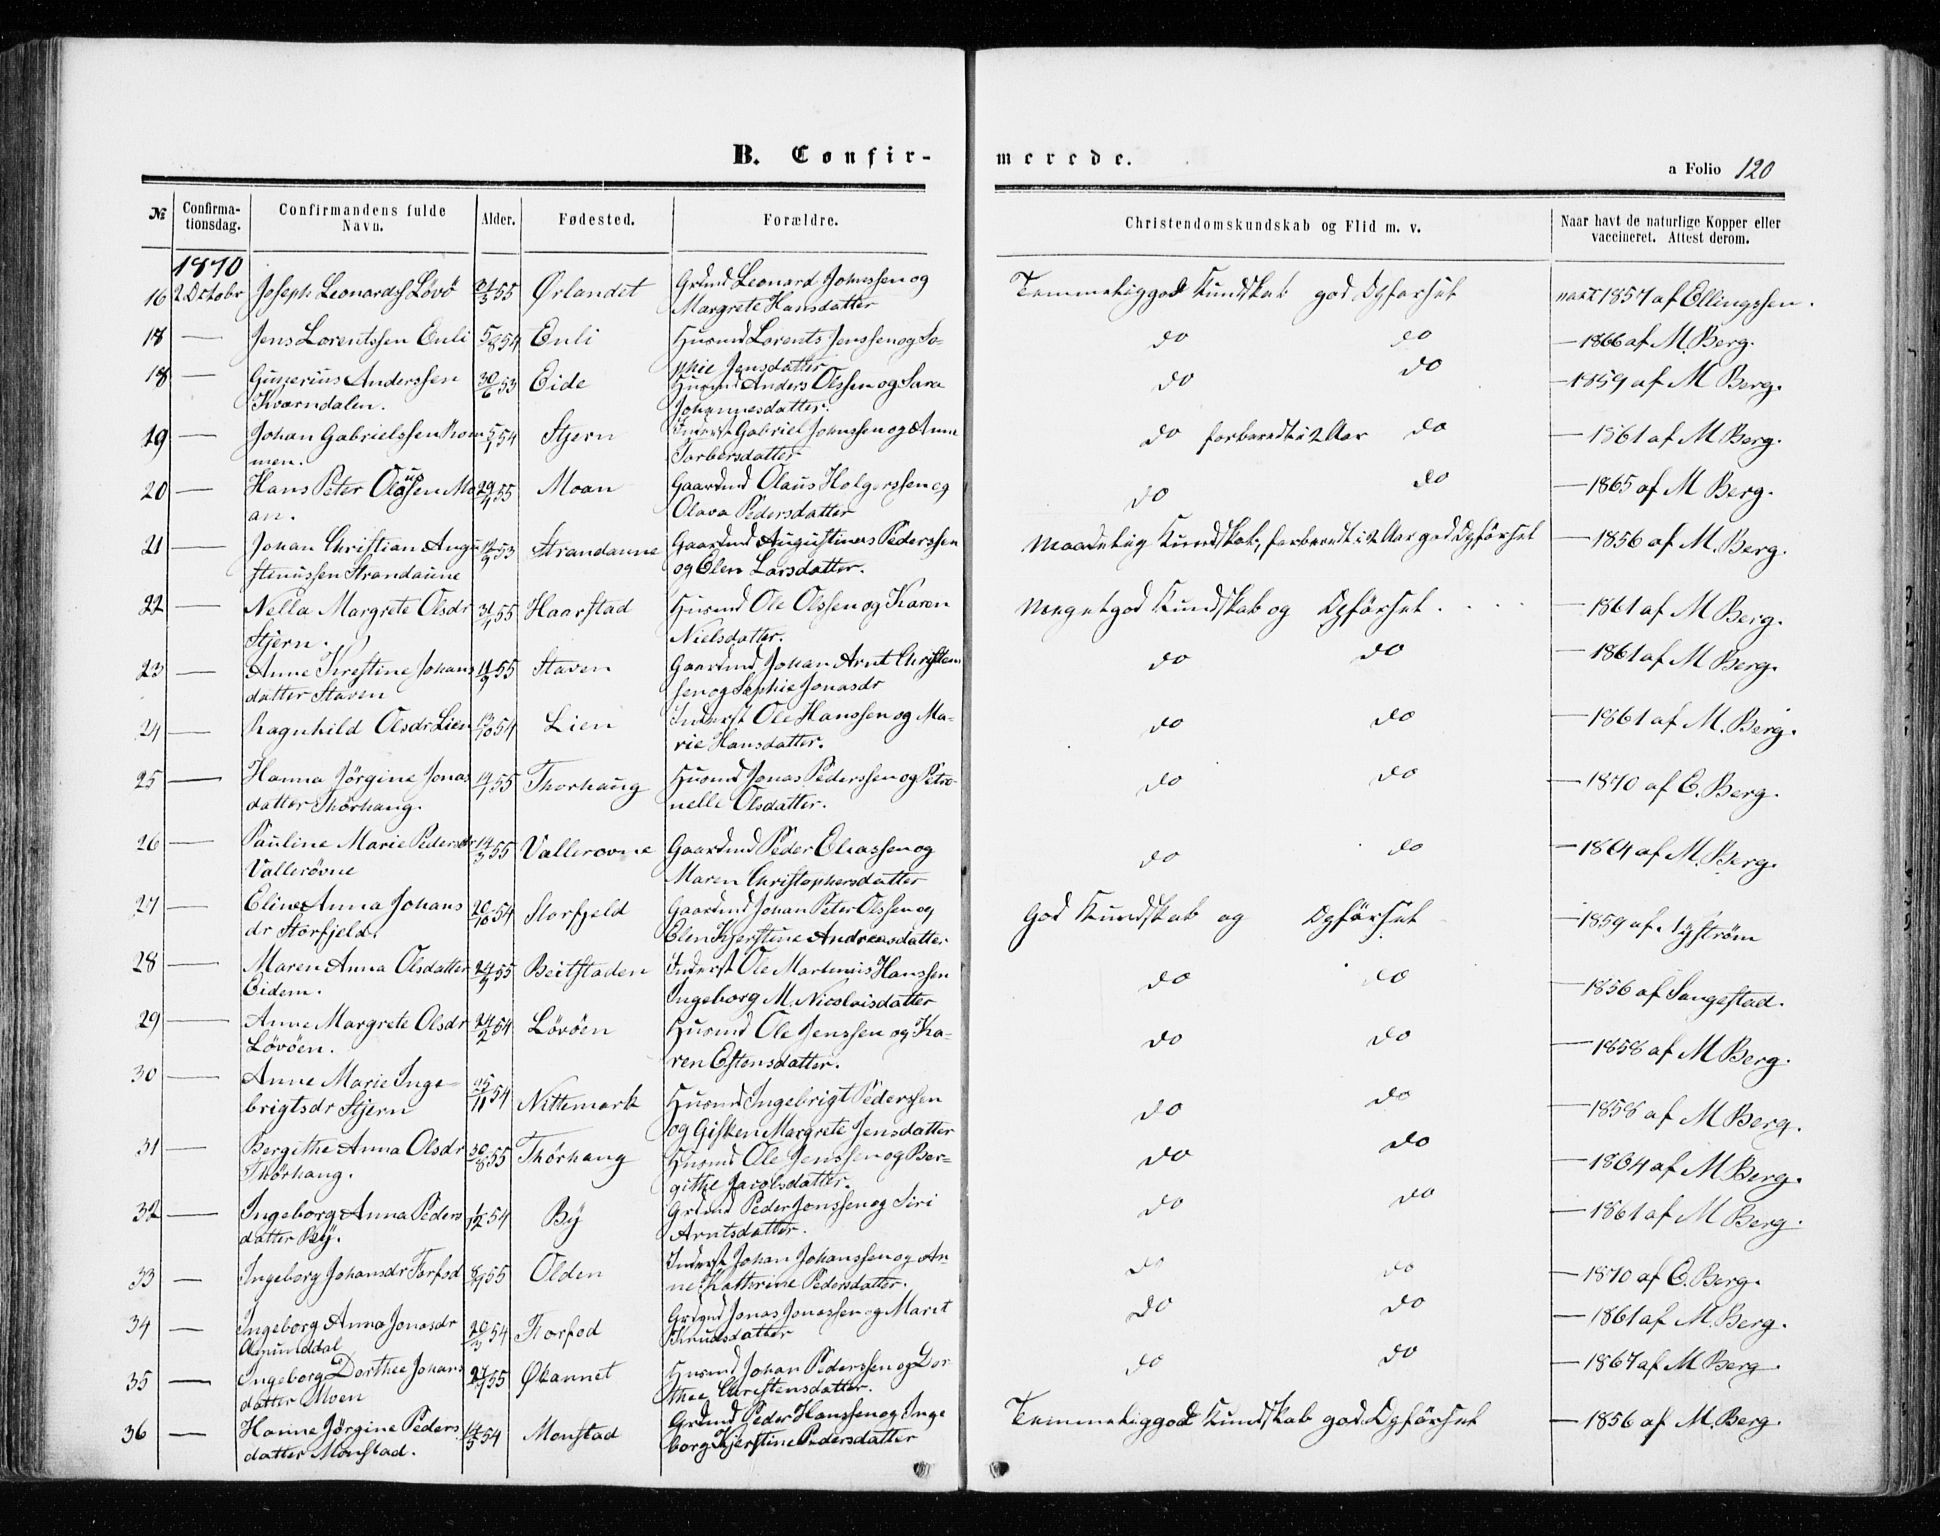 B. Confir-
merede.
a Folio 120
№
Confirma-
tionsdag.
Confirmandens fulde
Navn.
Alder.
Fødested.
Forældre.
Christendomskundskab og Flid m. v.
Naar havt de naturlige Kopper eller
vaccineret. Attest derom.
1870
16 2 Octobr Joseph Leonards Lövö 55 Ørlandet Grdmd Leonard Johnssen og
Margrete Hansdatter
Temmelig god Kundskab god Opførsel 1857 af Ellingssen.
17 — Jens Lorentssen Enli 5/8 54 Enli Husmd Lorents Jenssen og So-
phie Jensdatter
do do — 1866 af M. Berg.
18 — Gunerius Anderssen 30/6 53 Eide Husmd Anders Olssen og Sara
Kværndalen. Johannesdatter.
do do — 1859 af M Berg.
19 — Johan Gabrielssen Rom 54 Stjern Inderst Gabriel Johnssen og Anne
men. Torbersdatter
do forberedt i 2 Aar do — 1861 af M Berg.
20 — Hans Peter Olaussen Mo 29/4 55 Moan Gaardmd Olaus Holgerssen og
an. Olava Pedersdatter
do do — 1865 af M Berg.
21 — Johan Christian Augu 53 Strandaune Gaardmd Augustinus Pederssen
stinussen Strandaune og Elen Larsdatter.
Maadelig Kundskab, forberedt i 2 Aar god Opförsel — 1856 af M. Berg.
22 — Nella Margrete Olsdr 31/1 55 Haarstad Husmd Ole Olssen og Karen
Stjern. Nielsdatter.
Meget god Kundskab og Opförsel . . . . — 1861 af M Berg.
23 — Anne Krestine Johans 55 Staven Gaardmd Johan Arnt Christen
datter Staven sen og Sophie Jonasdr
do do — 1861 af M Berg.
24 — Ragnhild Olsdr Lien 13/10 54 Lien Inderst Ole Hanssen og Ma-
rie Hansdatter.
do do — 1861 af M. Berg.
25 — Hanna Jörgine Jonas 14/1 55 Thorhaug Husmd Jonas Pederssen og Petro-
datter Thörhaug. nelle Olsdatter.
do do — 1870 af C. Berg.
26 — Pauline Marie Pedersdr 14/3 55 Vallerovne Gaardmd Peder Eliassen og
Vallerövne Maren Christophersdatter
do do — 1864 af M. Berg.
27 — Eline Anna Johans 20/10 54 Storfjeld Gaardmd Johan Peter Olssen og
dr Storfjeld. Elen Kjerstine Andreasdatter
God Kundskab og Opförsel — 1859 af Nyström
28 — Maren Anna Olsdatter 55 Beitstaden Inderst Ole Martenius Hanssen
Eidem. Ingeborg M. Nicolaisdatter
do do — 1856 af Sangestad.
29 — Anne Margrete Olsdr 24/2 54 Lövöen Husmd Ole Jenssen og Ka-
Lövöen. ren Estensdatter.
do do — 1858 af M Berg.
30 — Anne Marie Inge- 25/11 54 Nittemark Husmd Ingebrigt Pederssen
brigtsdr Stjern og Gisken Margrete Jensdatter
do do — 1858 af M Berg.
31 — Bergithe Anna Olsdr 30/8 55 Thörhaug Husmd Ole Jenssen og Ber-
Thörhaug. githe Jacobsdatter.
do do — 1864 af M Berg.
32 — Ingeborg Anna Peders 1/12 54 By Grdmd Peder Jonssen og Siri
datter By. Arntsdatter.
do do — 1861 af M Berg.
33 — Ingeborg Johansdr Forfod 55 Olden Inderst Johan Johanssen og An
ne Kathrine Pedersdatter.
do do — 1870 af C. Berg.
34 — Ingeborg Anna Jonasdr 20/3 54 Forfod Grdmd Jonas Jonassen og Marit
Amunddal Knudsdatter
do do — 1861 af M. Berg.
35 — Ingeborg Dorthee Johans 55 Øxannet Husmd Johan Pederssen og Dor
datter Moen thee Christensdatter.
do do — 1867 af M Berg
36 — Hanne Jörgine Peders 14/5 54 Monstad Grdmd Peder Hanssen og Inge
datter Monstad. borg Kjerstine Pedersdatter
Temmelig god Kundskab god Opförsel — 1856 af M. Berg.